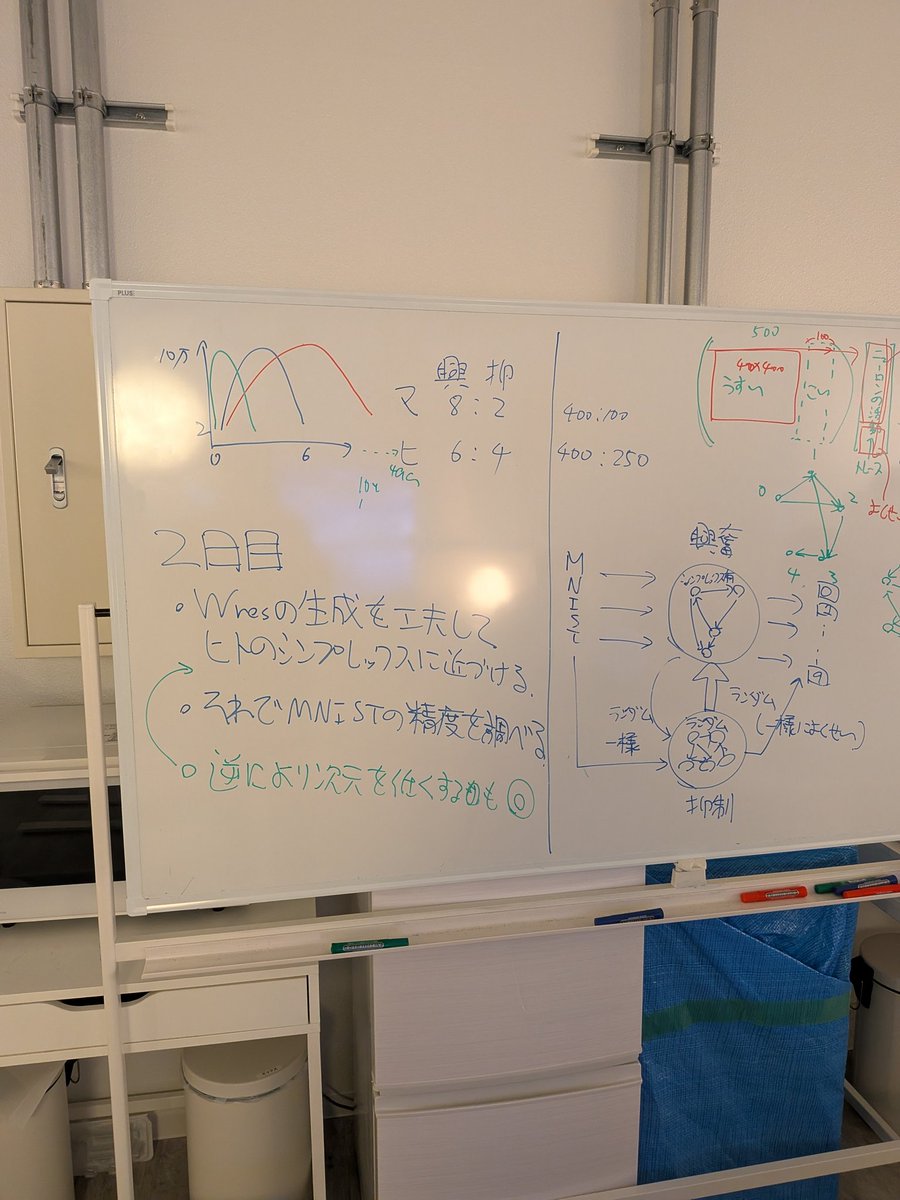 PLUS
10万
2
0
6
興 抑
マ 8:2
ヒ 6:4
2日目
・Wresの生成を工夫して
ヒトのシンプレックスに近づける.
・それでMNISTの精度を調べる
○逆により次元を低くするのも◎
400:100
400:250
500
100
400×400
うすい
こい
ニューロンの活動
トレース
0
2
4
3
興奮
MNIST
シンプレックス有
0
9
ランダム
一様
ランダム
(一様によくせい)
ランダム
抑制